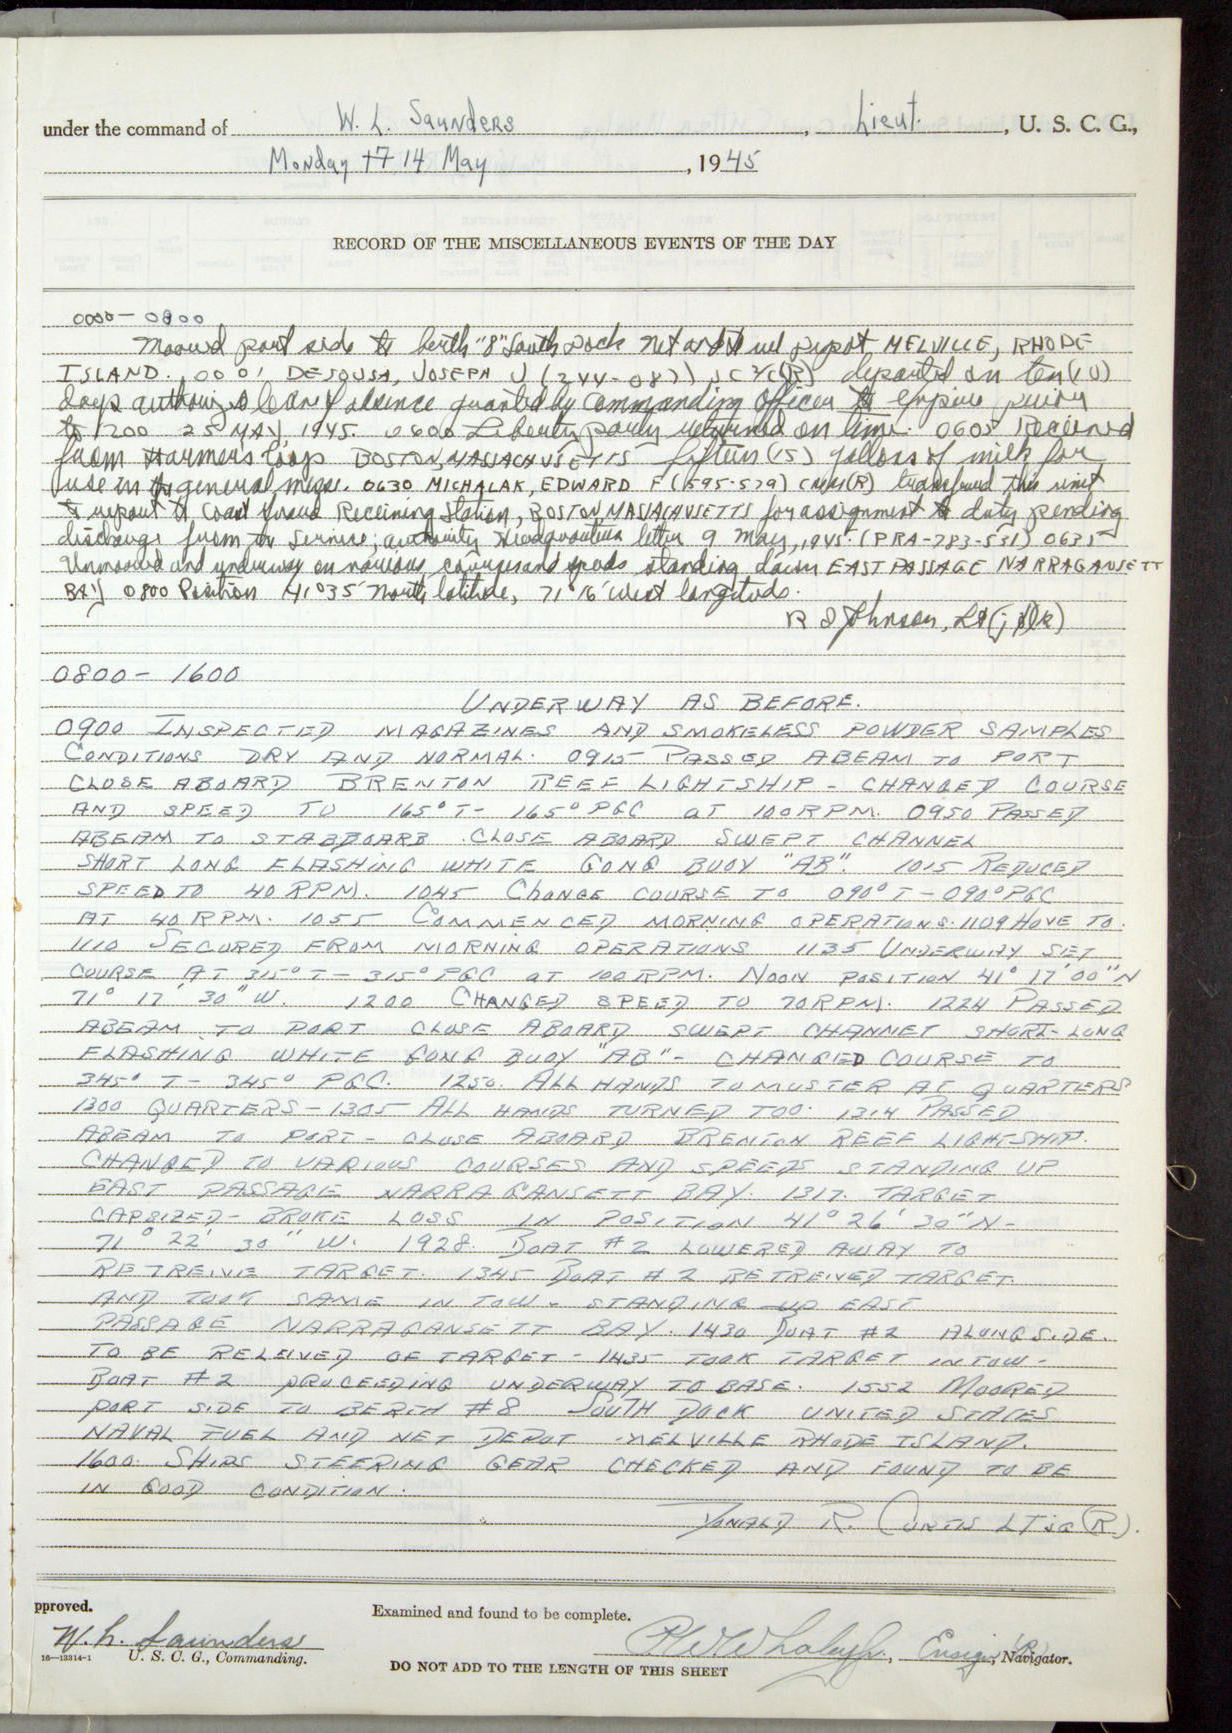 under the command of W. L. Saunders, Lieut., U. S. C. G.,
Monday 14 May, 1945
RECORD OF THE MISCELLANEOUS EVENTS OF THE DAY
0000-0800
Moored port side to berth "8" South Dock Net and Fuel Depot MELVILLE, RHODE
ISLAND. 0001 DESOUSA, JOSEPH J (244-087), SC2c(R) departed on ten (10)
days authorized leave of absence granted by Commanding Officer to expire prior
to 1200 25 MAY, 1945. 0600 Liberty party returned on time. 0605 Received
from BOSTON, MASSACHUSETTS fifteen (15) gallons of milk for
use in general mess. 0630 MICHALAK, EDWARD F (595-529) (R) transferred this unit
to report to Coast Guard Receiving Station, BOSTON MASSACHUSETTS for assignment to duty pending
discharge from the Service; authority Headquarters letter 9 May, 1945. (PRA-783-531) 0635
Unmoored and underway on various courses and speeds standing down EAST PASSAGE NARRAGANSETT
BAY 0800 Position 41°35' North latitude, 71°16' West longitude.
R S Johnson, Lt(jg)(R)
0800-1600
UNDERWAY AS BEFORE.
0900 INSPECTED MAGAZINES AND SMOKELESS POWDER SAMPLES
CONDITIONS DRY AND NORMAL. 0915 PASSED ABEAM TO PORT
CLOSE ABOARD BRENTON REEF LIGHTSHIP - CHANGED COURSE
AND SPEED TO 165° T - 165° PGC AT 100 RPM. 0950 PASSED
ABEAM TO STABBOARB CLOSE ABOARD SWEPT CHANNEL
SHORT LONG FLASHING WHITE GONG BUOY "AB". 1015 REDUCED
SPEED TO 40 RPM. 1045 CHANGE COURSE TO 090° T - 090° PGC
AT 40 RPM. 1055 COMMENCED MORNING OPERATIONS. 1109 HOVE TO.
1110 SECURED FROM MORNING OPERATIONS 1135 UNDERWAY SET
COURSE AT 315° T - 315° PGC AT 100 RPM. NOON POSITION 41° 17' 00" N
71° 17' 30" W. 1200 CHANGED SPEED TO 70 RPM. 1224 PASSED
ABEAM TO PORT CLOSE ABOARD SWEPT CHANNEL SHORT-LONG
FLASHING WHITE GONG BUOY "AB" - CHANGED COURSE TO
345° T - 345° PGC. 1250. ALL HANDS TO MUSTER AT QUARTERS
1300 QUARTERS - 1305 ALL HANDS TURNED TOO. 1314 PASSED
ABEAM TO PORT - CLOSE ABOARD BRENTON REEF LIGHTSHIP.
CHANGED TO VARIOUS COURSES AND SPEEDS STANDING UP
EAST PASSAGE NARRAGANSETT BAY. 1317. TARGET
CAPSIZED - BROKE LOSS IN POSITION 41° 26' 30" N -
71° 22' 30" W. 1928. BOAT #2 LOWERED AWAY TO
RETREIVE TARGET. 1345 BOAT #2 RETREIVED TARGET
AND TOOK SAME IN TOW - STANDING UP EAST
PASSAGE NARRAGANSETT BAY. 1430 BOAT #2 ALONGSIDE.
TO BE RELEIVED OF TARGET - 1435 TOOK TARGET IN TOW -
BOAT #2 PROCEEDING UNDERWAY TO BASE. 1552 MOORED
PORT SIDE TO BERTH #8 SOUTH DOCK UNITED STATES
NAVAL FUEL AND NET DEPOT MELVILLE RHODE ISLAND.
1600. SHIPS STEERING GEAR CHECKED AND FOUND TO BE
IN GOOD CONDITION.
DONALD R. CURTIS LTJG (R).
pproved.
Examined and found to be complete.
W. L. Saunders
U. S. C. G., Commanding.
Ensign, Navigator.
16—13314-1
DO NOT ADD TO THE LENGTH OF THIS SHEET